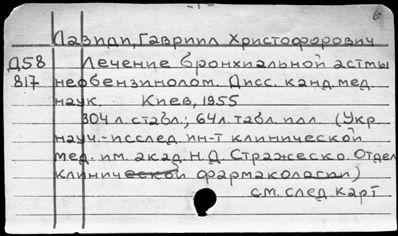 - 1 -
6
Лазиди, Гавриил Христофорович
Д58 Лечение бронхиальной астмы
817 небензинолом. Дисс. канд. мед.
наук. Киев, 1955
304 л с табл.; 64 л. табл. илл (Укр
науч.-исслед. ин-т клинической
мед. им. акад. Н.Д. Стражеско. Отдел
клинической фармакологии)
см. след карт